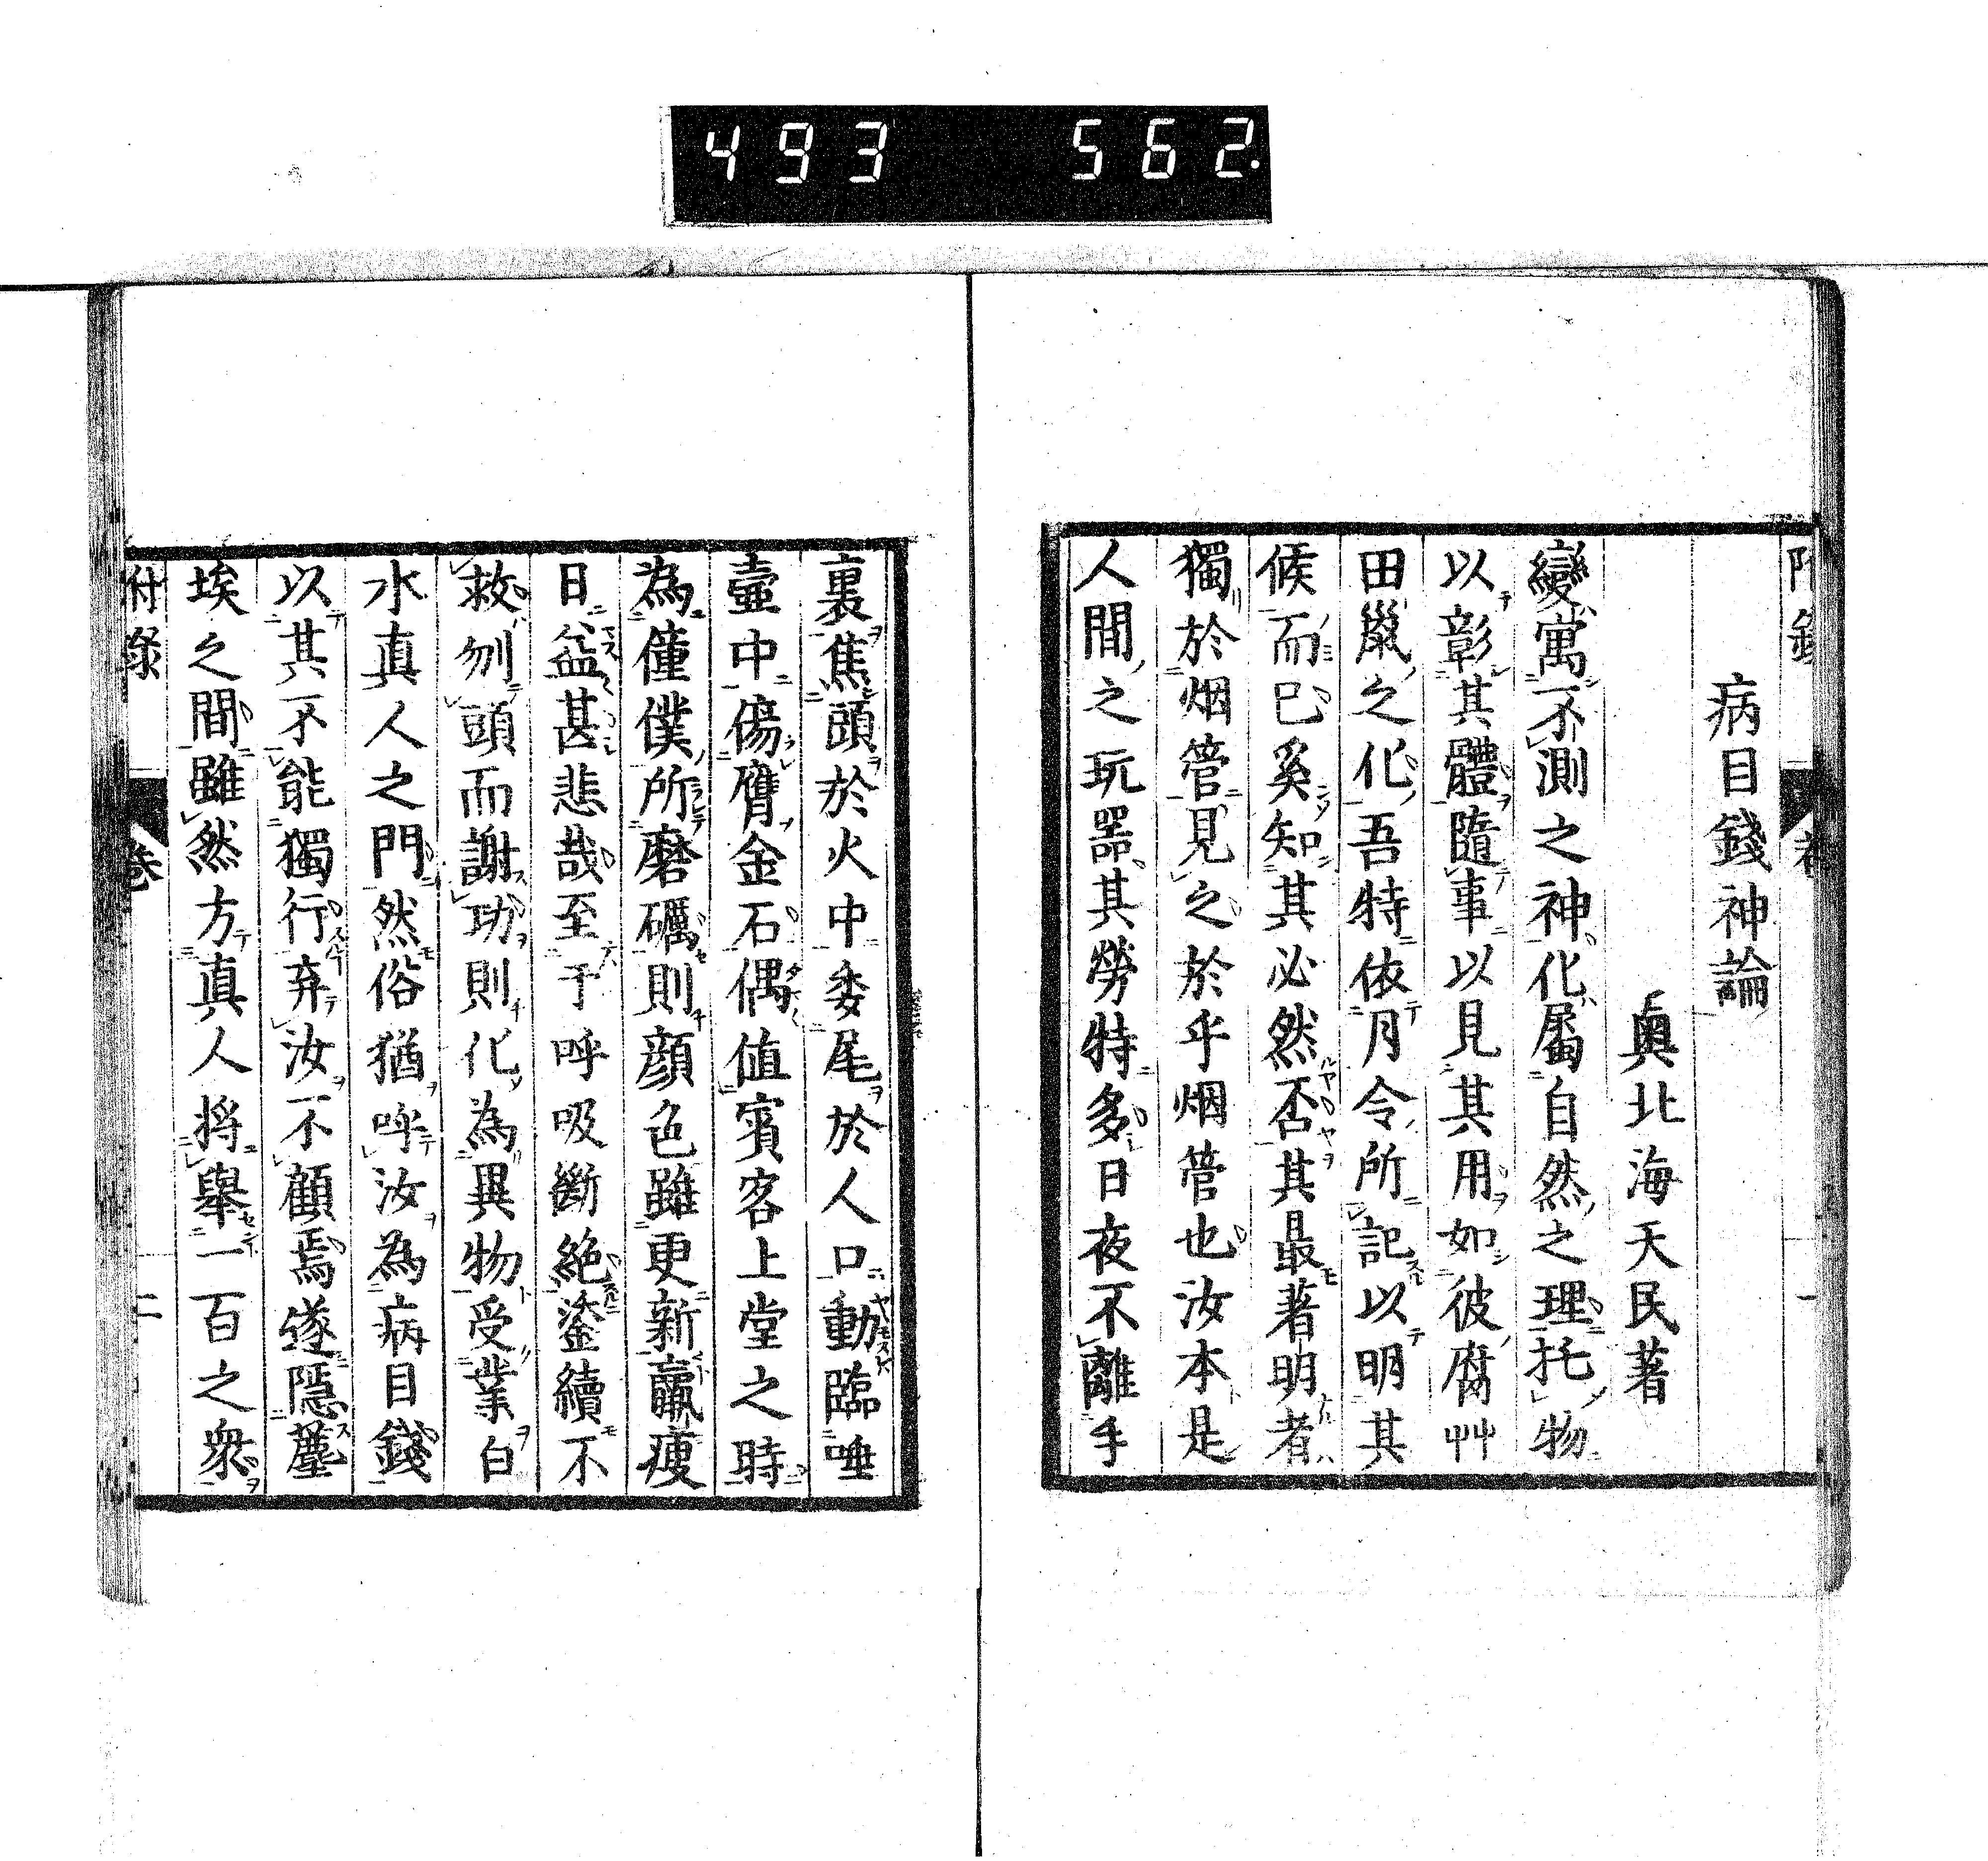 493 562.
附錄
病目錢神論
奧北海天民著
變寓不測之神化屬自然之理托物
以彰其體隨事以見其用如彼腐艸
田鼠之化吾特依月令所記以明其
候而已奚知其必然否其最著明者
獨於烟管見之於乎烟管也汝本是
人間之玩器其勞特多日夜不離手
裏焦頭於火中委尾於人口動臨唾
壷中傷膺金石偶値賓客上堂之時
為僮僕所磨礪則顔色雖更新羸瘦
日益甚悲哉至于呼吸斷絕塗續不
救刎頭而謝功則化為異物受業白
水真人之門然俗猶呼汝為病目錢
以其不能獨行弃汝不顧焉遂隱塵
埃之間雖然方真人將舉一百之衆
附錄
卷
二